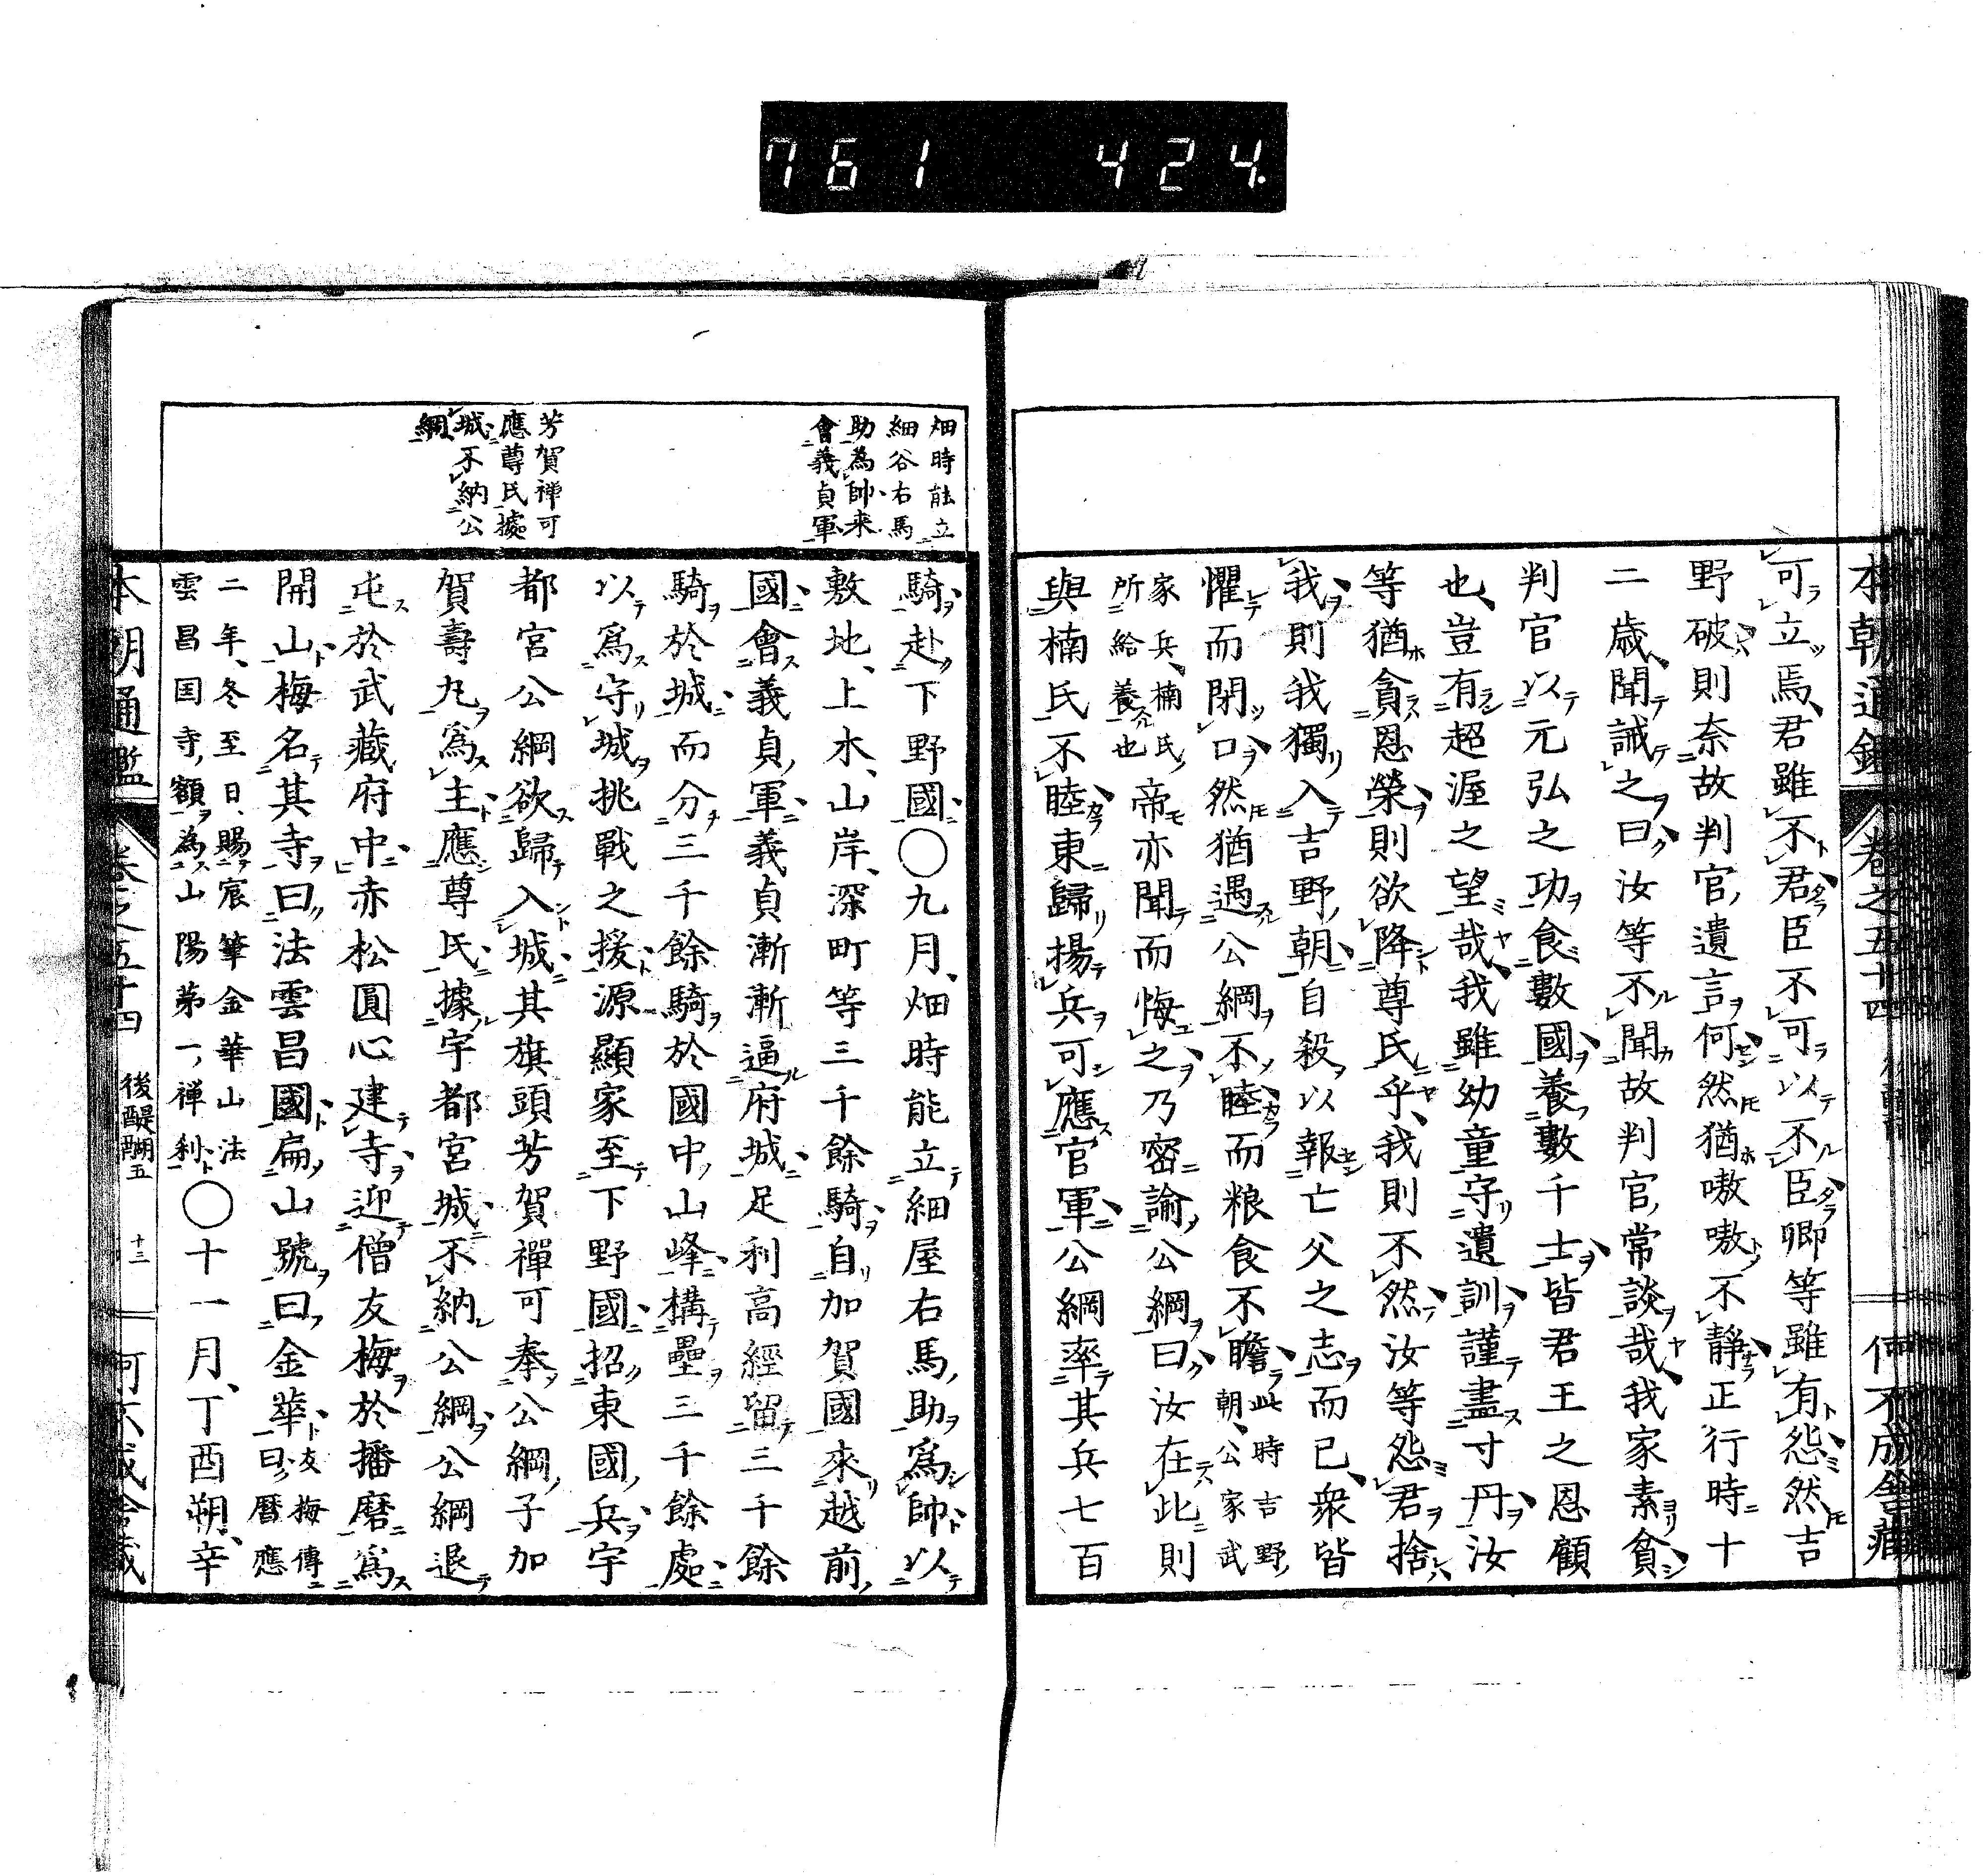 761 424.
本朝通鑑 卷之五十四 何不成舍藏
可立焉、君雖不君臣不可以不臣卿等雖有怨然吉
野破則奈故判官遺言何然猶嗷嗷不靜正行時十
二歳聞誡之曰汝等不聞故判官常談哉我家素貧
判官以元弘之功食數國養數千士皆君王之恩顧
也豈有超渥之望哉我雖幼童守遺訓謹盡寸丹汝
等猶貪恩榮則欲降尊氏乎、我則不然汝等怨君捨
我則我獨入吉野朝自殺以報亡父之志而已衆皆
懼而閉口然猶遇公綱不睦而粮食不贍此時吉野、朝公家武
家兵、楠氏所給養也帝亦聞而悔之乃密諭公綱曰汝在此則
與楠氏不睦東歸揚兵可應官軍公綱率其兵七百
畑時能立
細谷右馬
助為帥来
會義貞軍
芳賀禅可
應尊氏據
城不納公
綱
騎赴下野國〇九月、畑時能立細屋右馬助爲帥以
敷地、上木、山岸、深町等三千餘騎自加賀國來越前
國會義貞軍義貞漸漸逼府城足利高經留三千餘
騎於城而分三千餘騎於國中山峰構壘三千餘處
以爲守城挑戰之援源顯家至下野國招東國兵宇
都宮公綱欲歸入城其旗頭芳賀禪可奉公綱子加
賀壽丸爲主應尊氏據宇都宮城不納公綱公綱退
屯於武藏府中赤松圓心建寺迎僧友梅於播磨爲
開山梅名其寺曰法雲昌國扁山號曰金華友梅傳曰暦應
二年、冬至日、賜宸筆金華山法雲昌国寺額爲山陽第一禅利〇十一月、丁酉朔、辛
本朝通鑑 卷之五十四 後醍醐五 十三 何不成舍藏